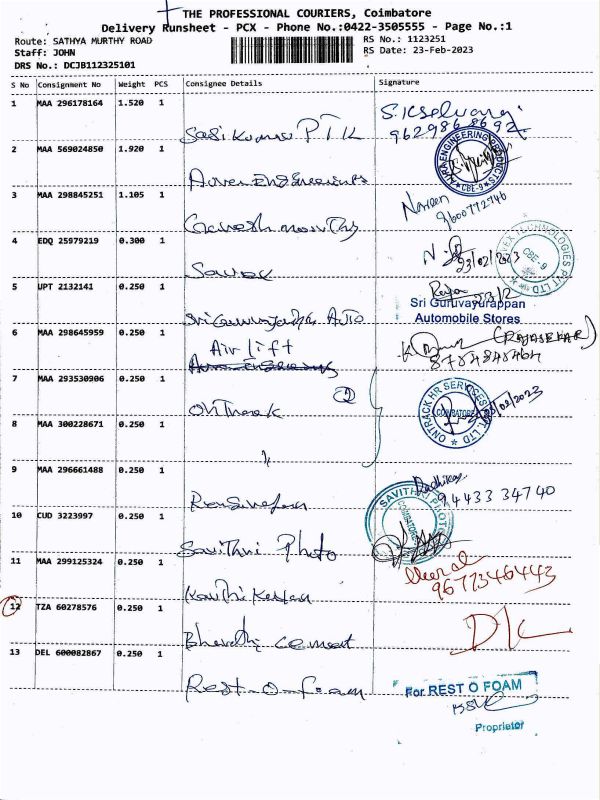 THE PROFESSIONAL COURIERS, Coimbatore
Delivery Runsheet - PCX - Phone No.:0422-3505555 - Page No.:1
Route: SATHYA MURTHY ROAD
RS No.: 1123251
Staff: JOHN
RS Date: 23-Feb-2023
DRS No.: DCJB112325101
S No Consignment No Weight PCS Consignee Details Signature
1 MAA 296178164 1.520 1
Sasi Kumar PTK
9629868692
2 MAA 569024850 1.920 1
ENGINEERING PRODUCTS
CBE-9
3 MAA 298845251 1.105 1
Ganesh moorthy
Naveen
9600772746
4 EDQ 25979219 0.300 1
23/02/2023
TECHNOLOGIES PVT LTD
CBE-9
5 UPT 2132141 0.250 1
Auto
23/2
Sri Guruvayurappan
Automobile Stores
6 MAA 298645959 0.250 1
Air lift
(RAJASEKAR)
8784848464
7 MAA 293530906 0.250 1
Ontrack
2
ONTRACK HR SERVICES PVT. LTD
COIMBATORE
8 MAA 300228671 0.250 1
9 MAA 296661488 0.250 1
Radhika
94433 34740
10 CUD 3223997 0.250 1
Savithri Photo
SAVITHRI PHOTO
COIMBATORE
11 MAA 299125324 0.250 1
9677346443
12 TZA 60278576 0.250 1
Bharathi cement
D/C
13 DEL 600082867 0.250 1
Rest-O-foam
For REST O FOAM
Proprietor